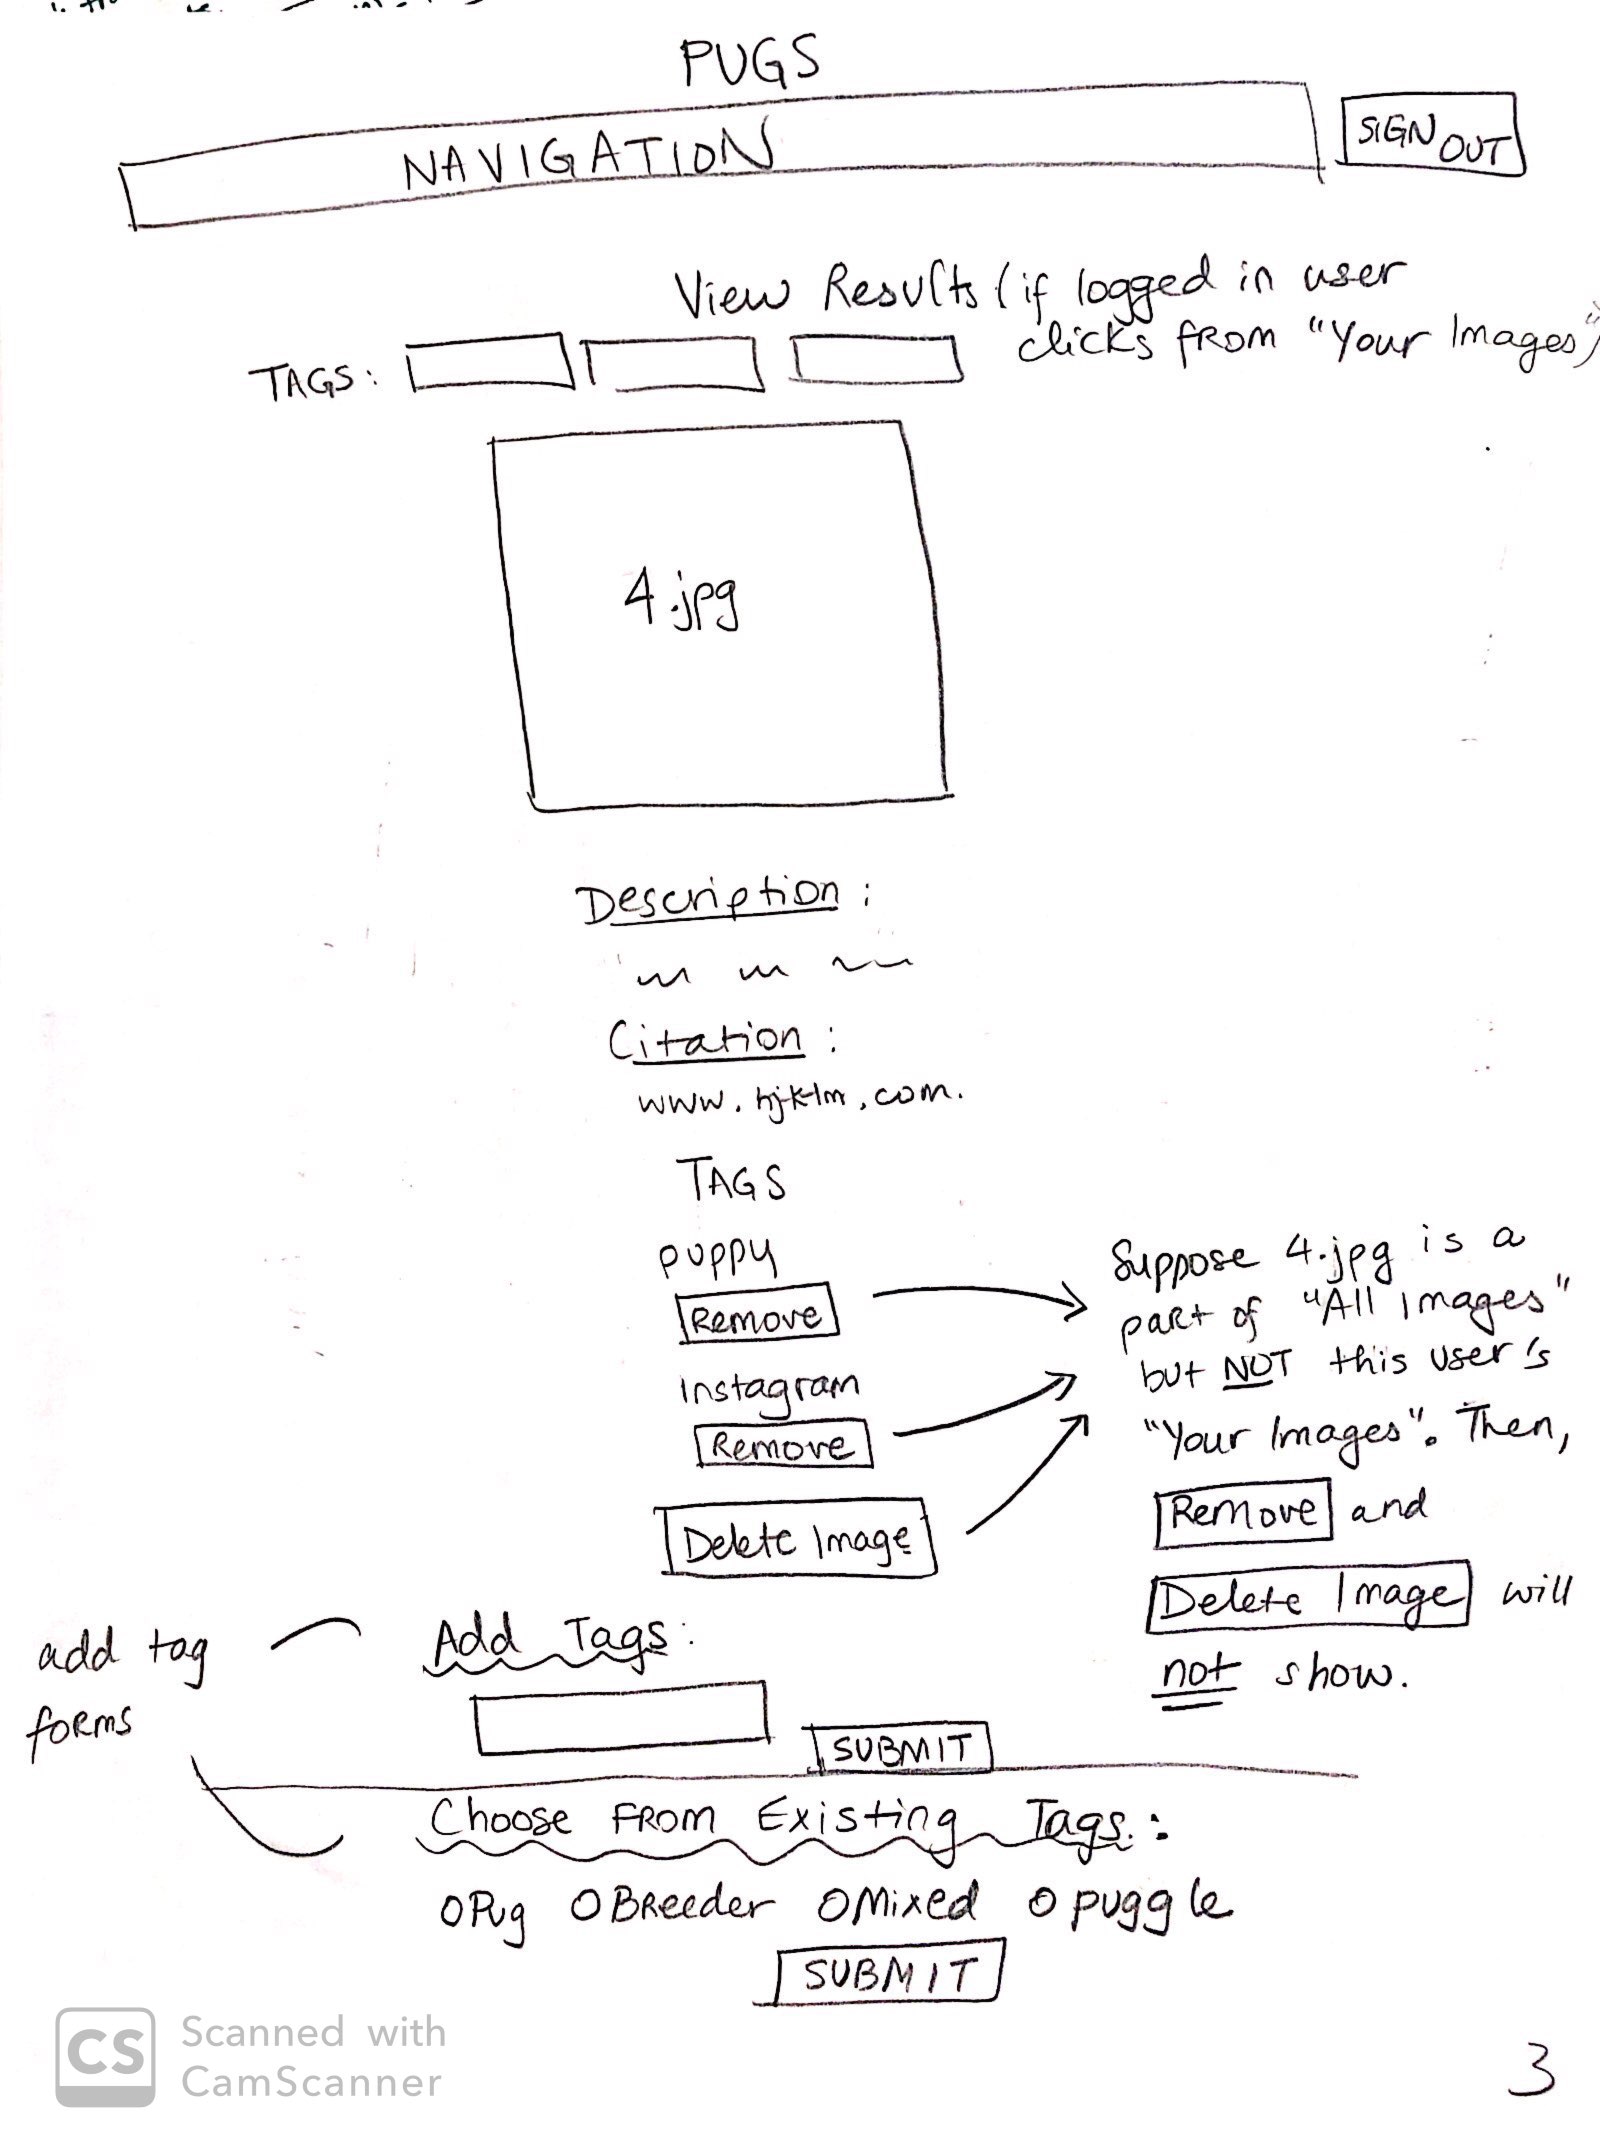 PUGS
NAVIGATION
SIGN OUT
View Results (if logged in user
clicks from "Your Images")
TAGS:
4.jpg
Description:
Citation:
www.hjklm.com.
TAGS
puppy
Remove
instagram
Remove
Delete Image
Suppose 4.jpg is a
part of "All Images"
but NOT this user's
"Your Images". Then,
Remove and
Delete Image will
not show.
add tag
forms
Add Tags:
SUBMIT
Choose From Existing Tags:
O Pug O Breeder O Mixed O puggle
SUBMIT
CS
Scanned with
CamScanner
3